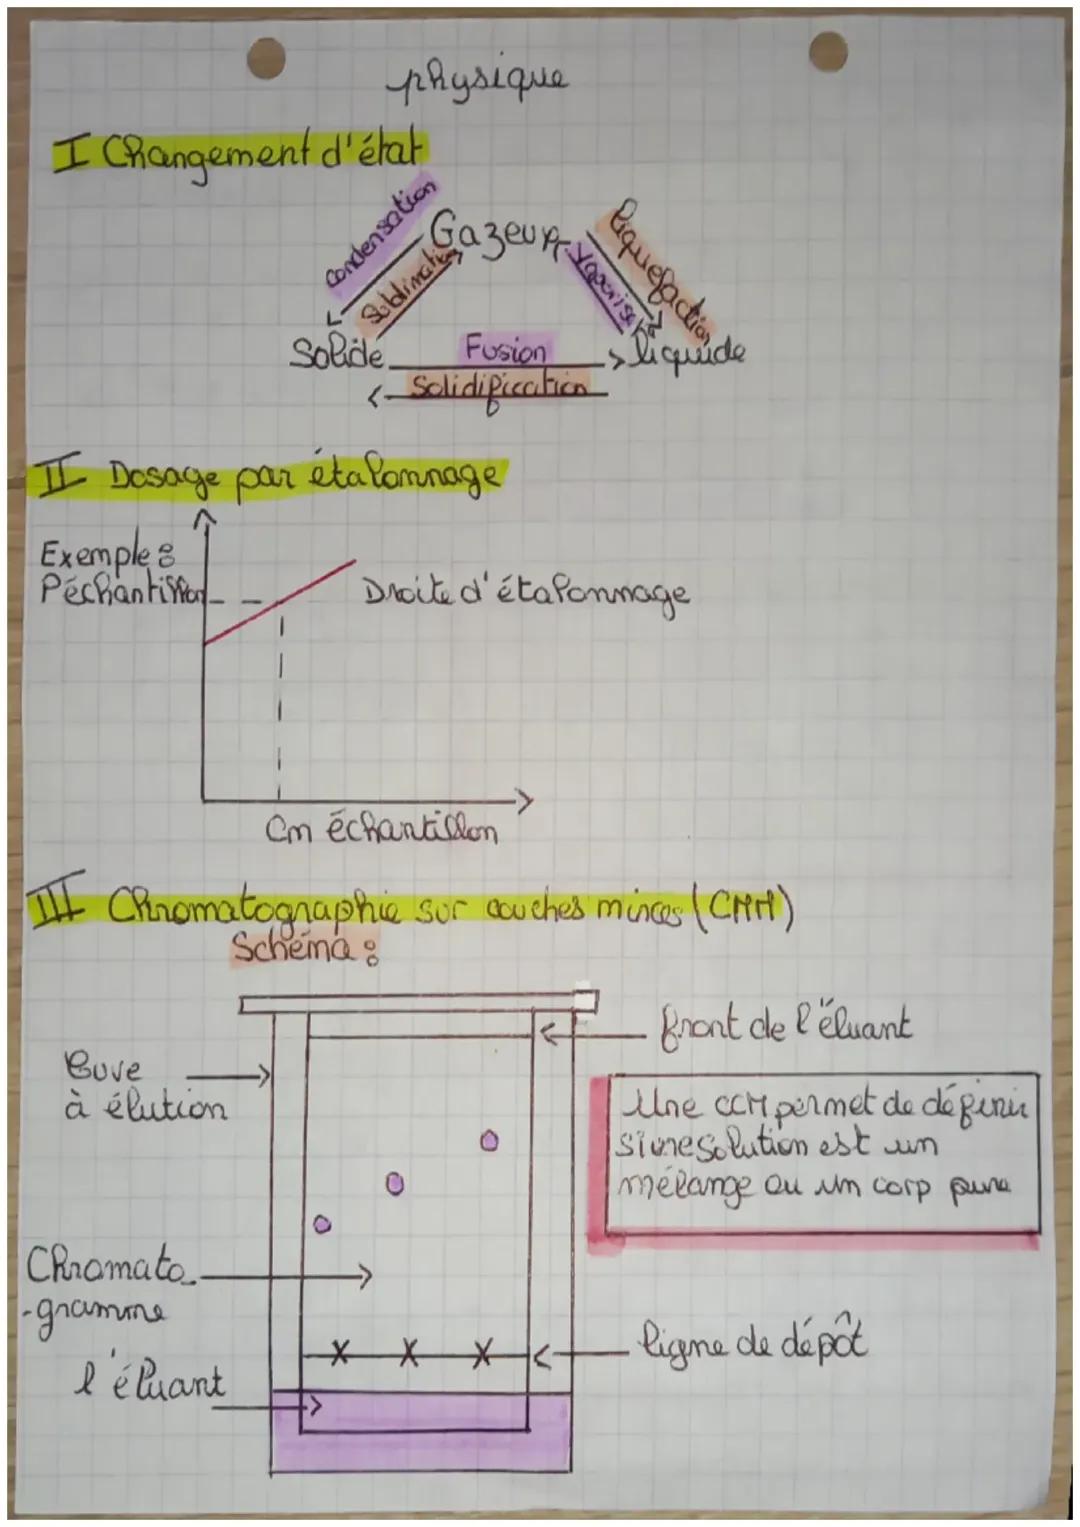 physique
I Changement d'état
condensation
Gazeux
liquefaction
Sublimation
Vaporisat°
Solide
Fusion
liquide
Solidification
II Dosage par étalonnage
Exemple :
Péchantillon
Droite d'étalonnage
Cm échantillon
III Chromatographie sur couches minces (CMM)
Schéma :
front de l'éluant
Cuve
à élution
Une CCM permet de définir
si une solution est un
mélange ou un corp pure
Chromato-
-gramme
ligne de dépôt
l'éluant